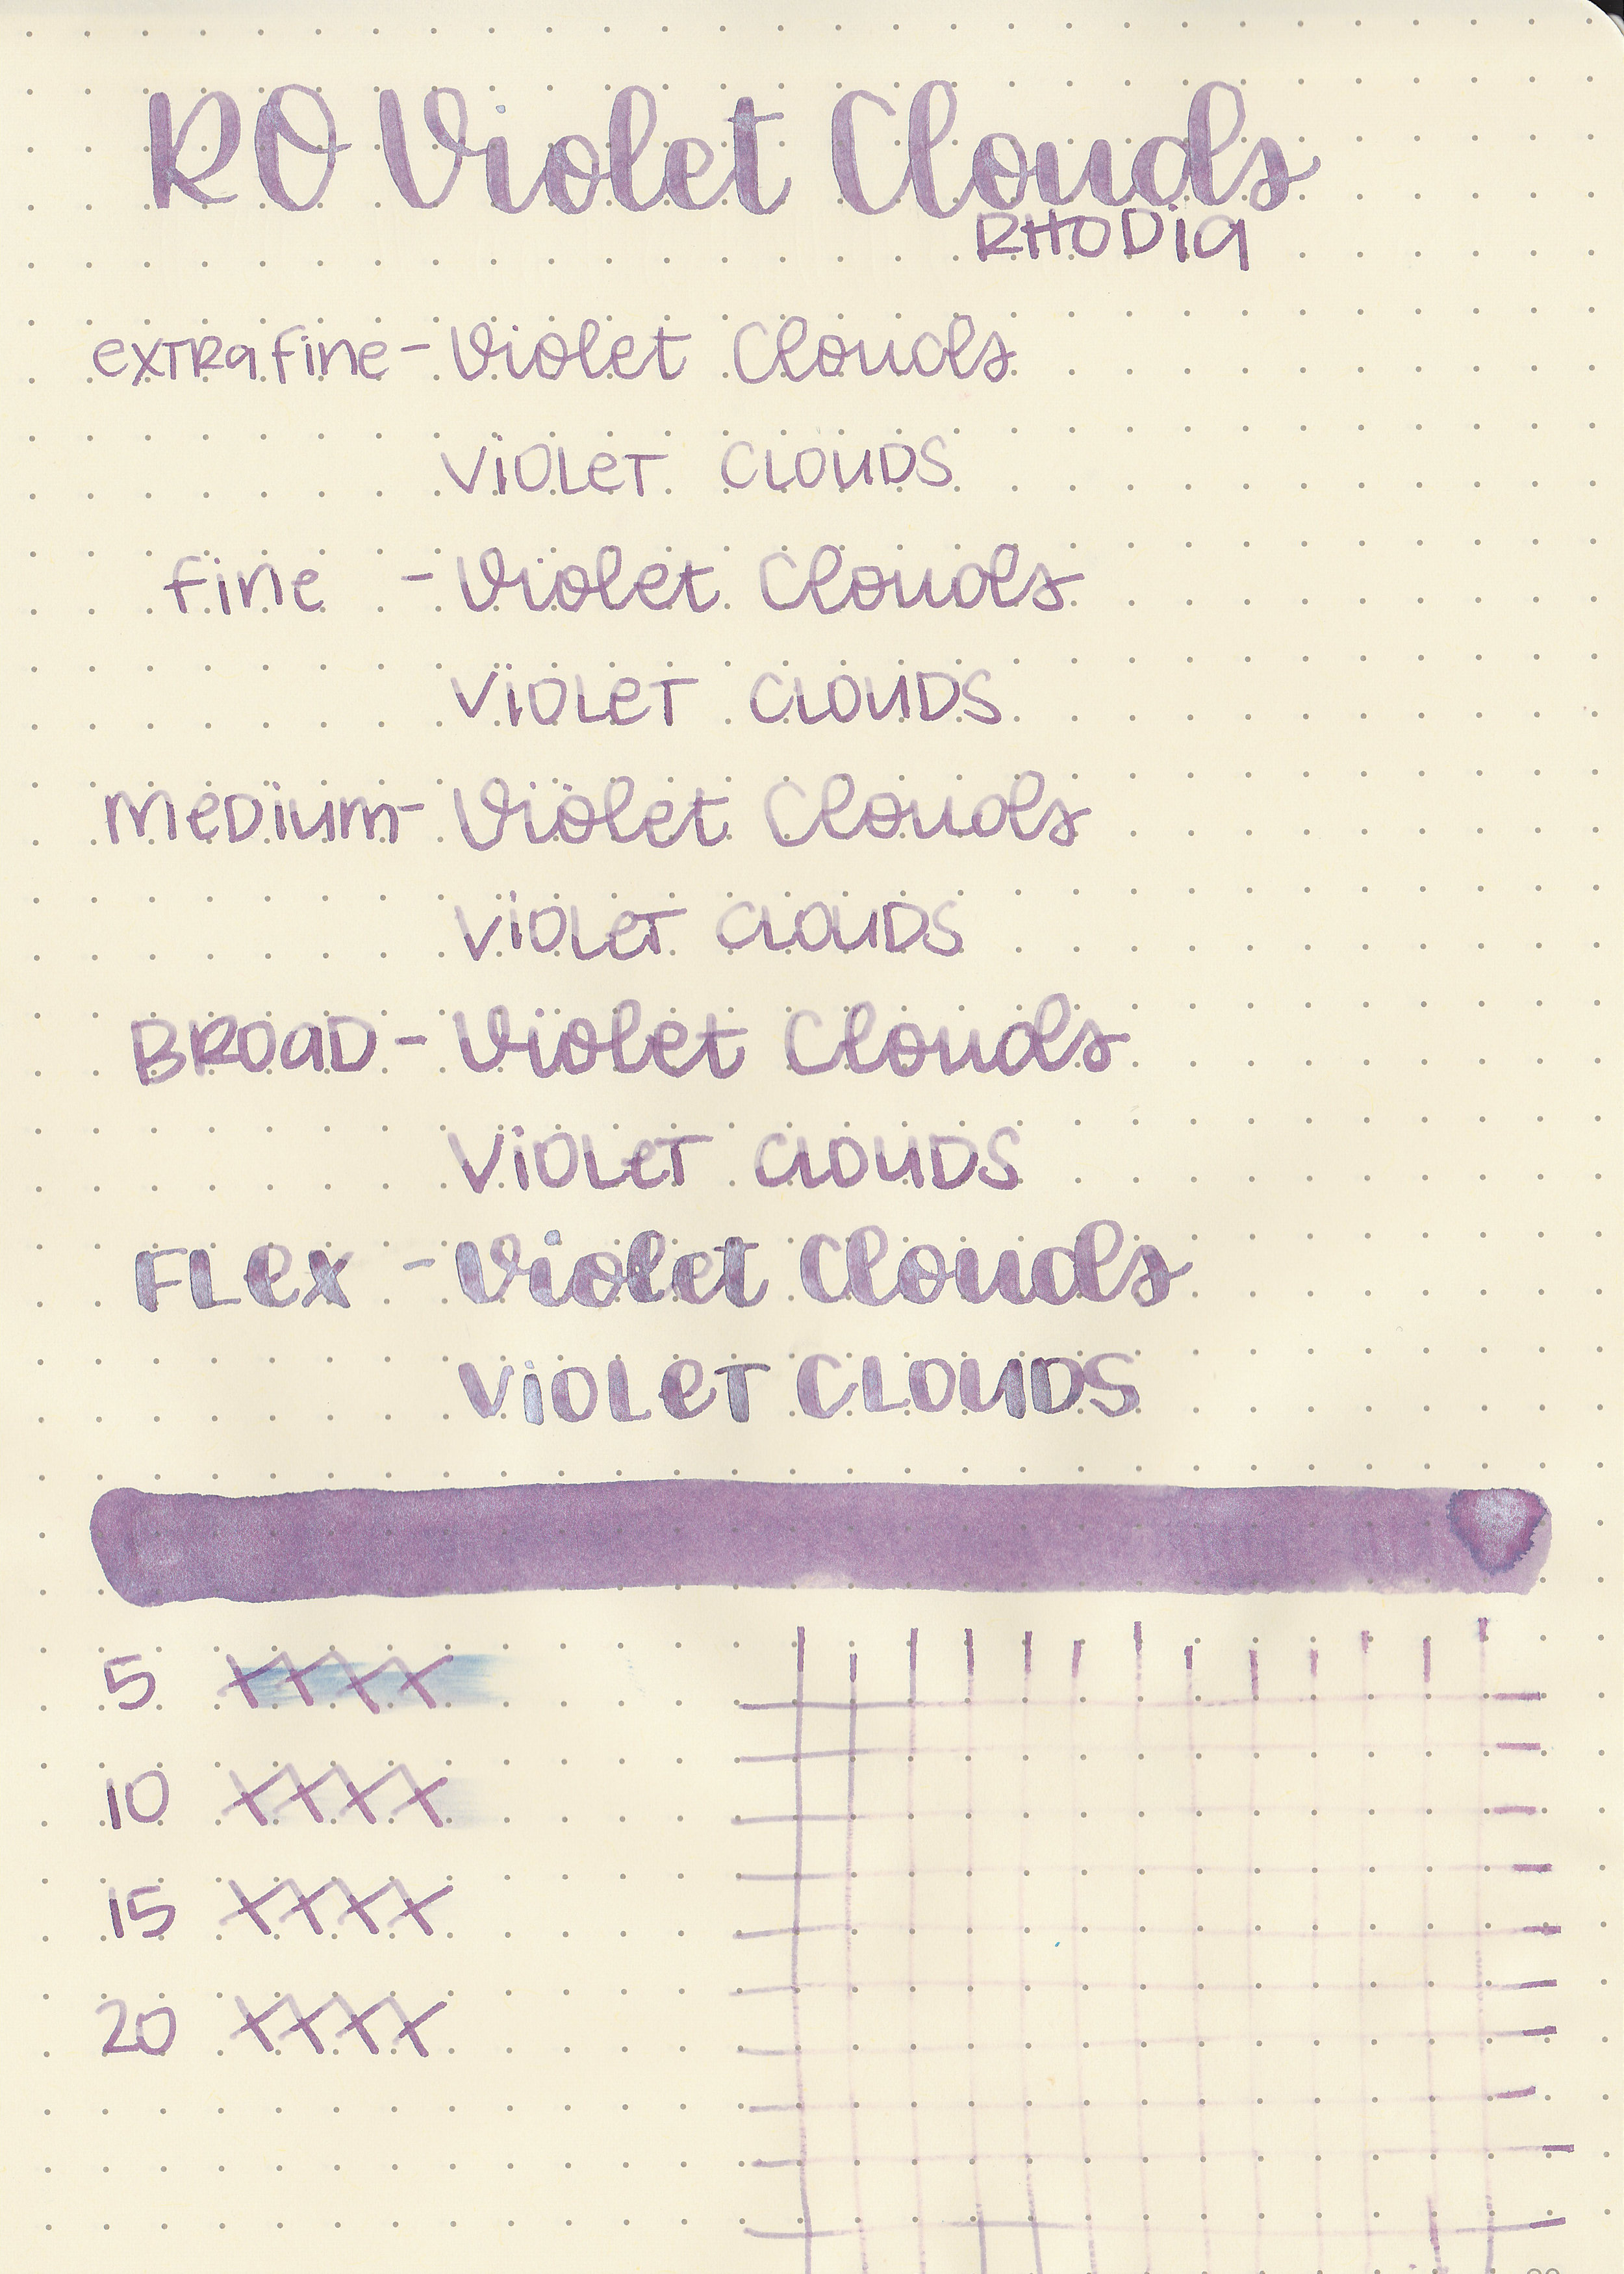 RO Violet Clouds
RHODia
extra fine - Violet Clouds
VioLeT CLOUDS
fine - Violet Clouds
VioLeT CLOUDS
MeDium - Violet Clouds
VioLeT CLOUDS
BROaD - Violet Clouds
VioLeT CLOUDS
FLex - Violet Clouds
VioLeT CLOUDS
5 XXXX
10 XXXX
15 XXXX
20 XXXX